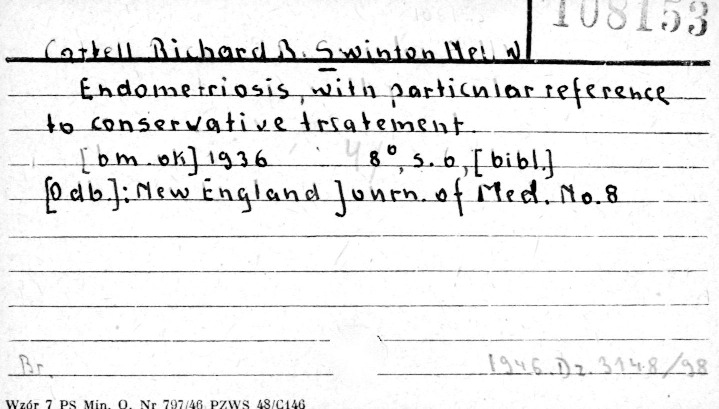 108153
Cattell Richard B. Swinton Neil W
Endometriosis, with particular reference
to conservative trsatement.
[b.m. ok] 1936 8°, s. 6, [bibl.]
[Odb.]: New England Journ. of Med. No. 8
Br. 1946. Dz. 3148/98
Wzór 7 PS Min. O. Nr 797/46 PZWS 48/C146